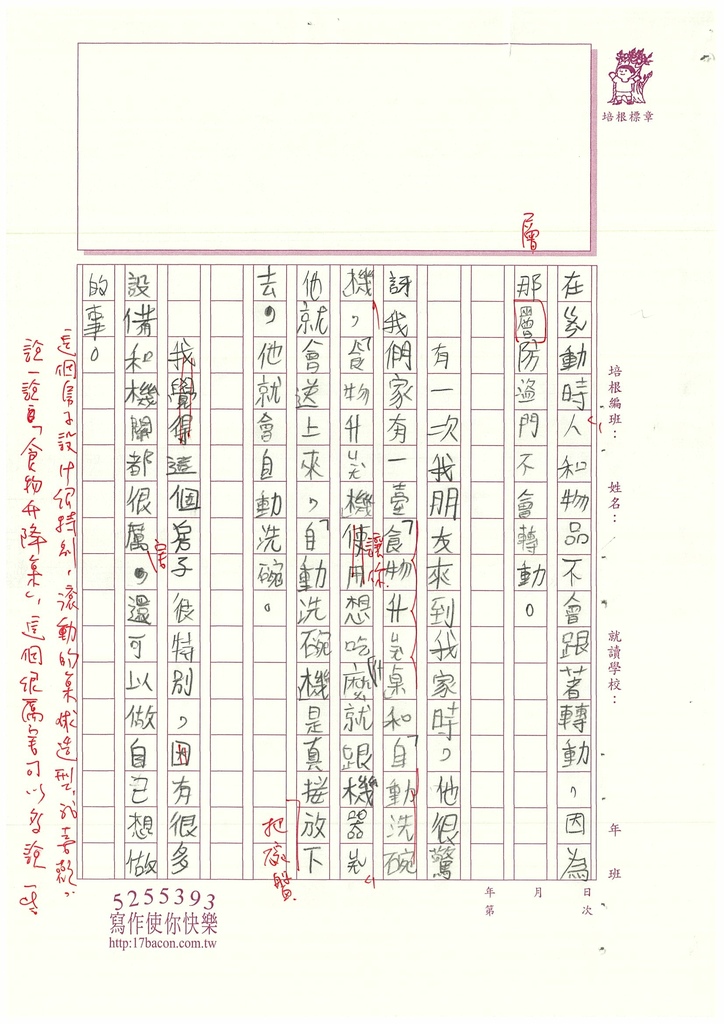 培根標章
培根編班：
姓名：
就讀學校：
年　班
在滾動時人和物品不會跟著轉動，因為
那層防盜門不會轉動。
層
有一次我朋友來到我家時，他很驚
訝我們家有一臺「食物升桌和「自動洗碗
機，「食物升機使用想吃麼就跟機器
讓你
他就會送上來，自動洗碗機是真接放下
去，他就會自動洗碗。
把碗盤
我覺得這個房子很特別，因有很多
設備和機關都很厲，還可以做自己想做
害
的事。
這個房子設計很特別，滾動的菓球造型，我喜歡，
說一說「食物升降菓」，這個很厲害可以多說一些
日　月　年
次　第
5255393
寫作使你快樂
http:17bacon.com.tw